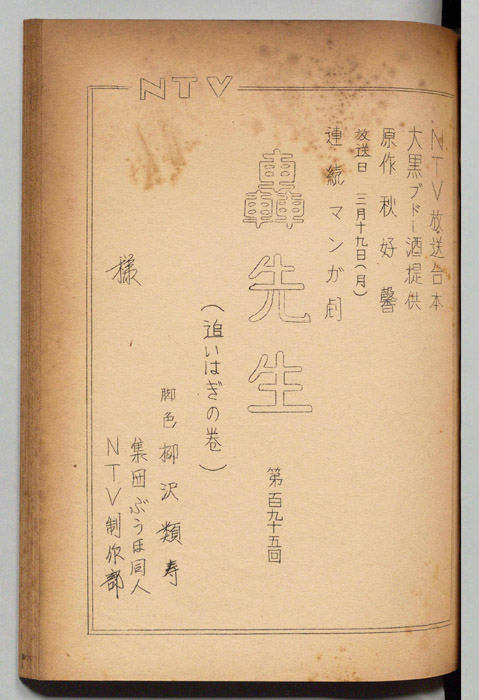 NTV
NTV放送台本
大黒ブドー酒提供
原作 秋好馨
放送日 三月十九日(月)
連続マンガ劇
轟先生
第百九十五回
(追いはぎの巻)
脚色 柳沢類寿
集団ぶうほ同人
NTV制作部
様